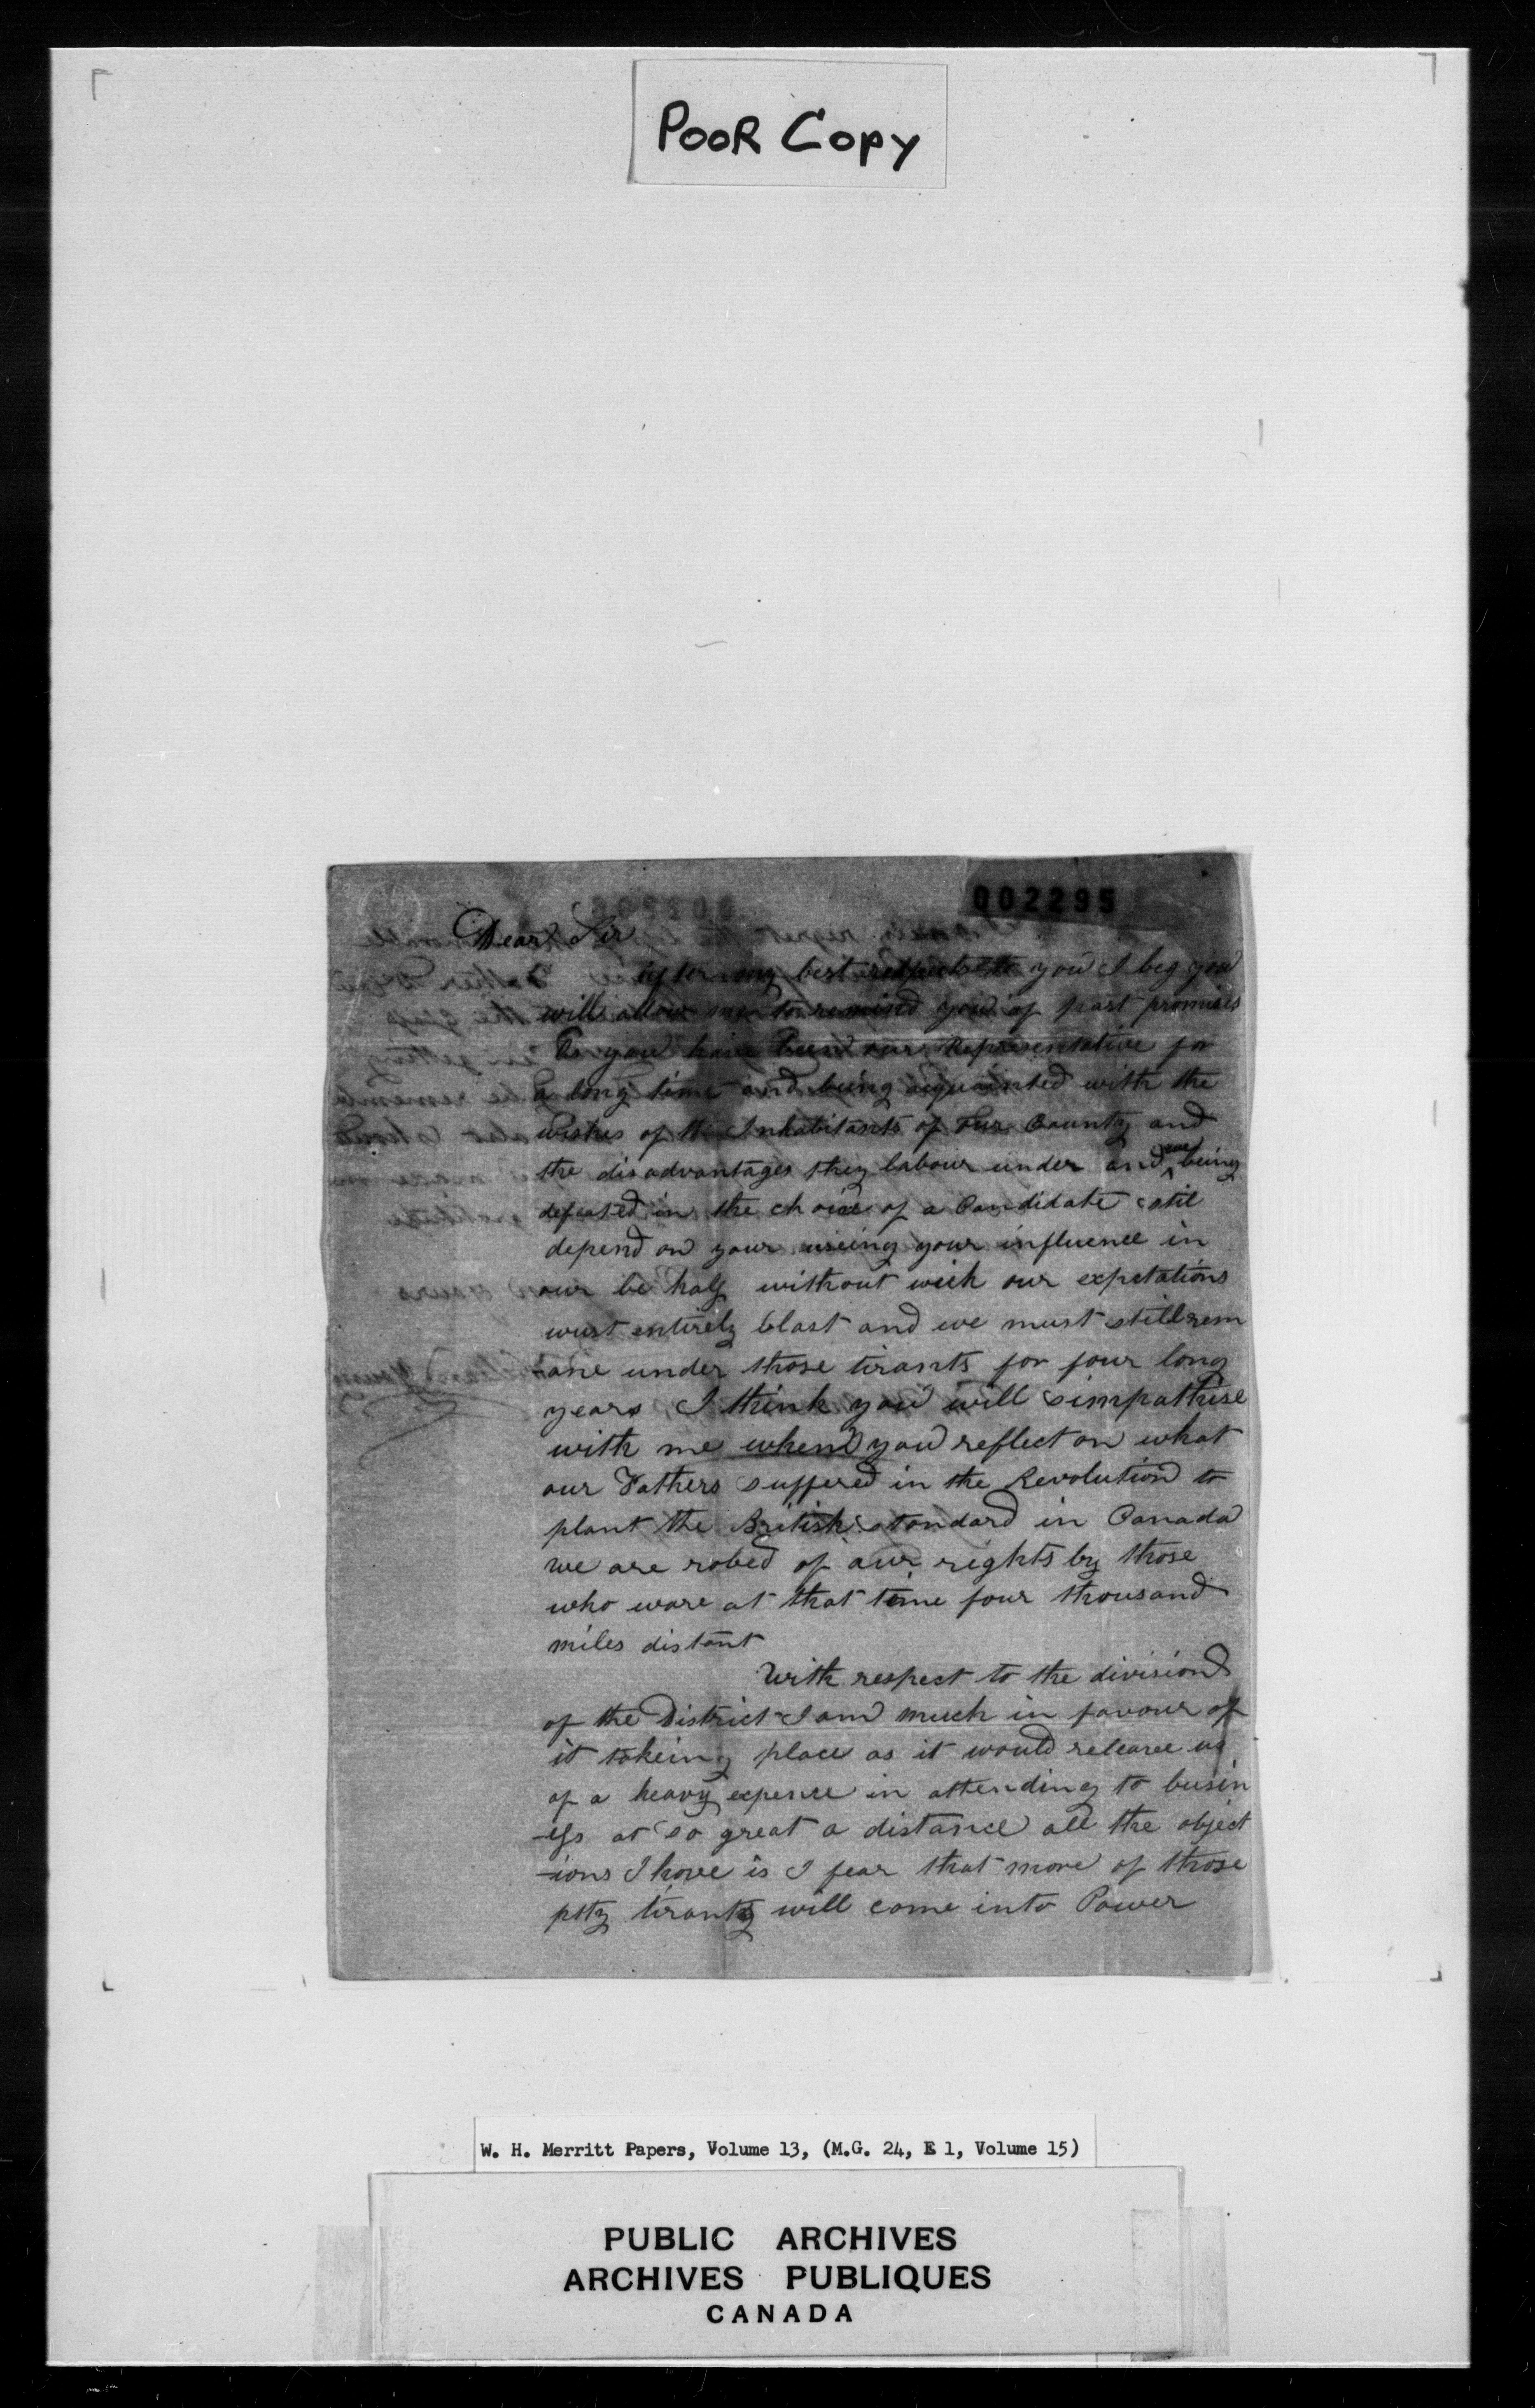 POOR COPY
002295
Dear Sir
after my best respects to you I beg you
will allow me to remind you of past promises
As you have been our Representative for
a long time and being acquainted with the
wishes of the Inhabitants of our County and
the disadvantages they labour under and we being
defeated in the choice of a Candidate stil
depend on your useing your influence in
our be half without wich our expctations
wust entirely blast and we must still rem
-ane under those tirants for four long
years I think you will simpathise
with me when you reflect on what
our Fathers suffered in the Revolution to
plant the British standard in Canada
we are robed of our rights by those
who ware at that time four thousand
miles distant
With respect to the division
of the District I am much in favour of
it takeing place as it would releace us
of a heavy expence in attending to busin
-ess at so great a distance all the object
-ions I have is I fear that more of those
ptty tiranty will come into Power
W. H. Merritt Papers, Volume 13, (M.G. 24, E 1, Volume 15)
PUBLIC ARCHIVES
ARCHIVES PUBLIQUES
CANADA